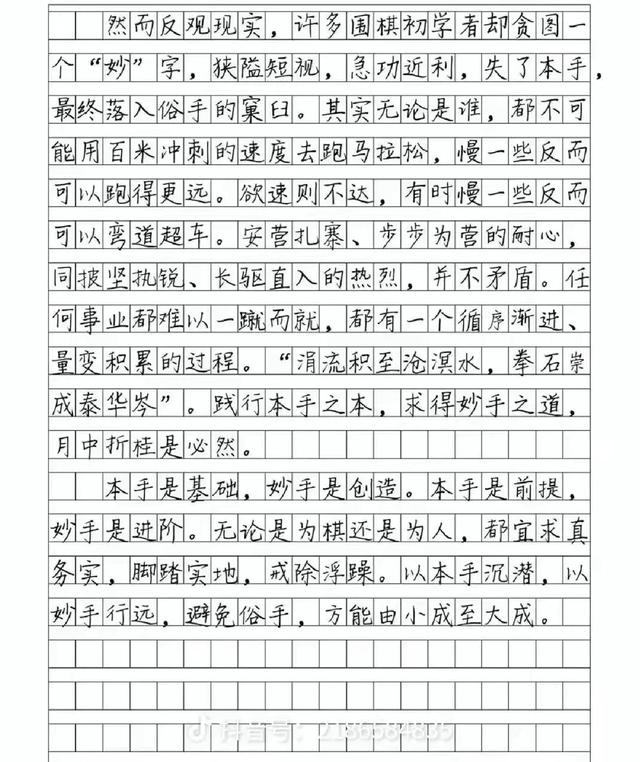 然而反观现实，许多围棋初学者却贪图一
个“妙”字，狭隘短视，急功近利，失了本手，
最终落入俗手的窠臼。其实无论是谁，都不可
能用百米冲刺的速度去跑马拉松，慢一些反而
可以跑得更远。欲速则不达，有时慢一些反而
可以弯道超车。安营扎寨、步步为营的耐心，
同披坚执锐、长驱直入的热烈，并不矛盾。任
何事业都难以一蹴而就，都有一个循序渐进、
量变积累的过程。“涓流积至沧溟水，拳石崇
成泰华岑”。践行本手之本，求得妙手之道，
月中折桂是必然。
本手是基础，妙手是创造。本手是前提，
妙手是进阶。无论是为棋还是为人，都宜求真
务实，脚踏实地，戒除浮躁。以本手沉潜，以
妙手行远，避免俗手，方能由小成至大成。
抖音号：2186584835